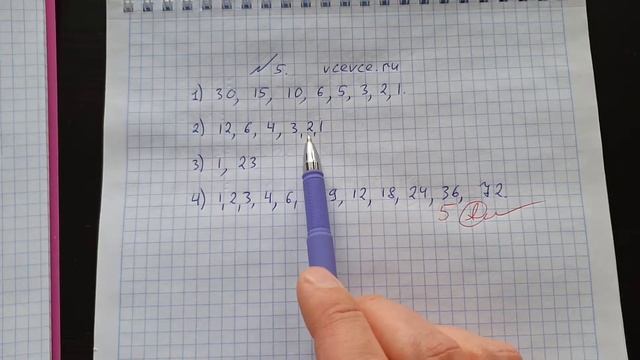 №5. vcevce.ru
1) 30, 15, 10, 6, 5, 3, 2, 1.
2) 12, 6, 4, 3, 2, 1
3) 1, 23
4) 1, 2, 3, 4, 6, 9, 12, 18, 24, 36, 72.
5